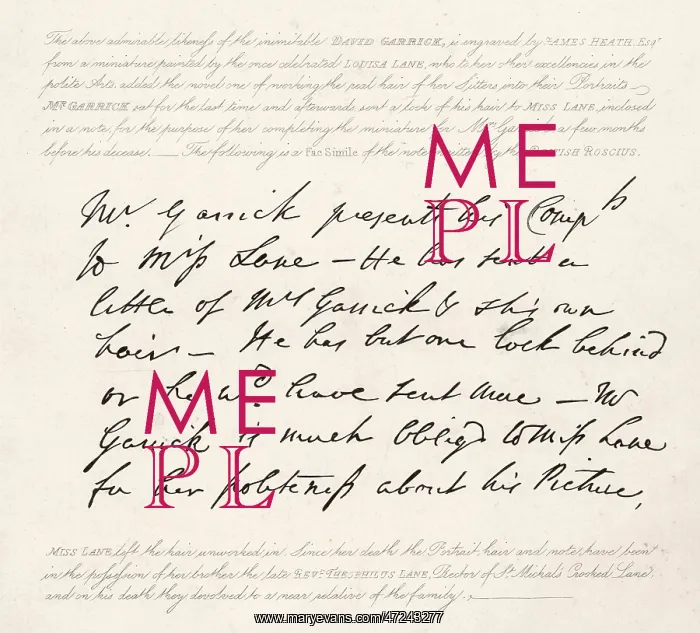 The above admirable likeness of the inimitable DAVID GARRICK, is engraved by JAMES HEATH, Esqr
from a miniature painted by the once celebrated LOUISA LANE, who to her other excellencies in the
polite Arts, added the novel one of working the real hair of her Sitters, into their Portraits
Mr GARRICK sat for the last time and afterwards sent a lock of his hair to MISS LANE, inclosed
in a note, for the purpose of her completing the miniature for Mrs Garrick a few months
before his decease. — The following is a Fac Simile of the note written by the BRITISH ROSCIUS.
ME
PL
Mr. Garrick presents his Compts
to Miss Lane — He has sent a
little of Mrs Garrick's & his own
hair — He has but one lock behind
or he wd have sent more — Mr
Garrick is much obliged to Miss Lane
for her politeness about his Picture,
ME
PL
MISS LANE left the hair unworked in. Since her death the Portrait, hair and note, have been
in the possession of her brother the late REVd. THEOPHILUS LANE, Rector of St Michals Crooked Lane,
and on his death they devolved to a near relative of the family.
www.maryevans.com/47243277